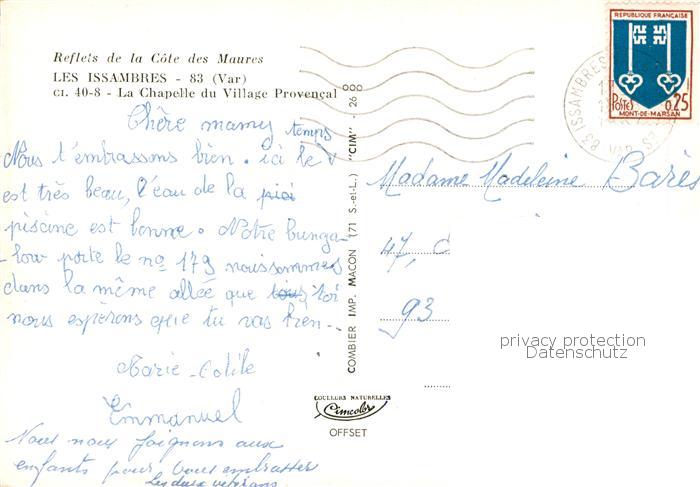 Reflets de la Côte des Maures
LES ISSAMBRES - 83 (Var)
Cl. 40-8 - La Chapelle du Village Provençal
Chère mamy
Nous t'embrassons bien. ici le temps
est très beau, l'eau de la
piscine est bonne. Notre bunga-
-low porte le no 179 nous sommes
dans la même allée que toi
nous espérons que tu vas bien-
Marie-Odile
Emmanuel
Nous nous joignons aux
enfants pour vous embrasser
Les deux vétérans
COMBIER IMP. MACON (71 S.-et-L.) "CIM" - 26
COULEURS NATURELLES
Cimcolor
OFFSET
REPUBLIQUE FRANÇAISE
POSTES 0,25
MONT-DE-MARSAN
83 ISSAMBRES
VAR
Madame Madeleine Barès
47, C
93
privacy protection
Datenschutz